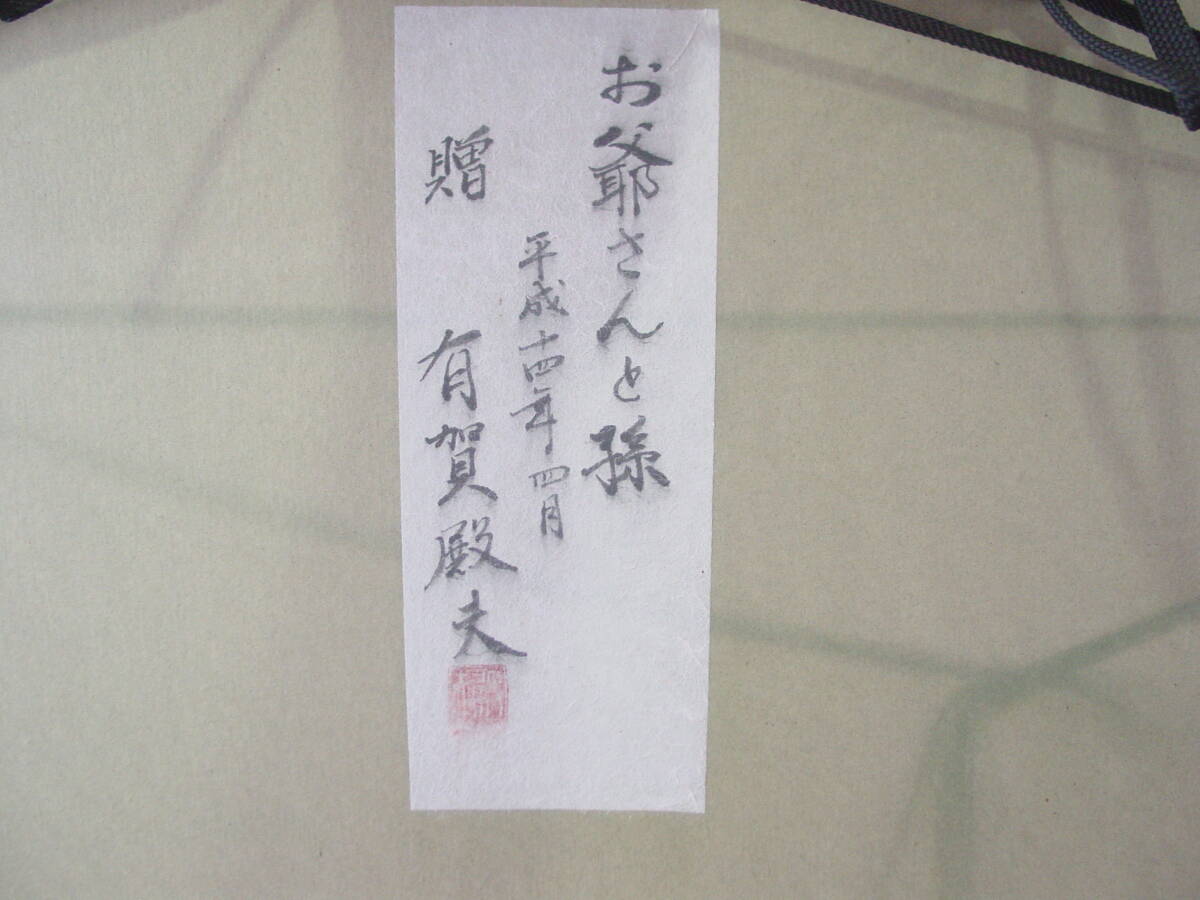 お爺さんと孫
平成十四年四月
贈 有賀殿夫